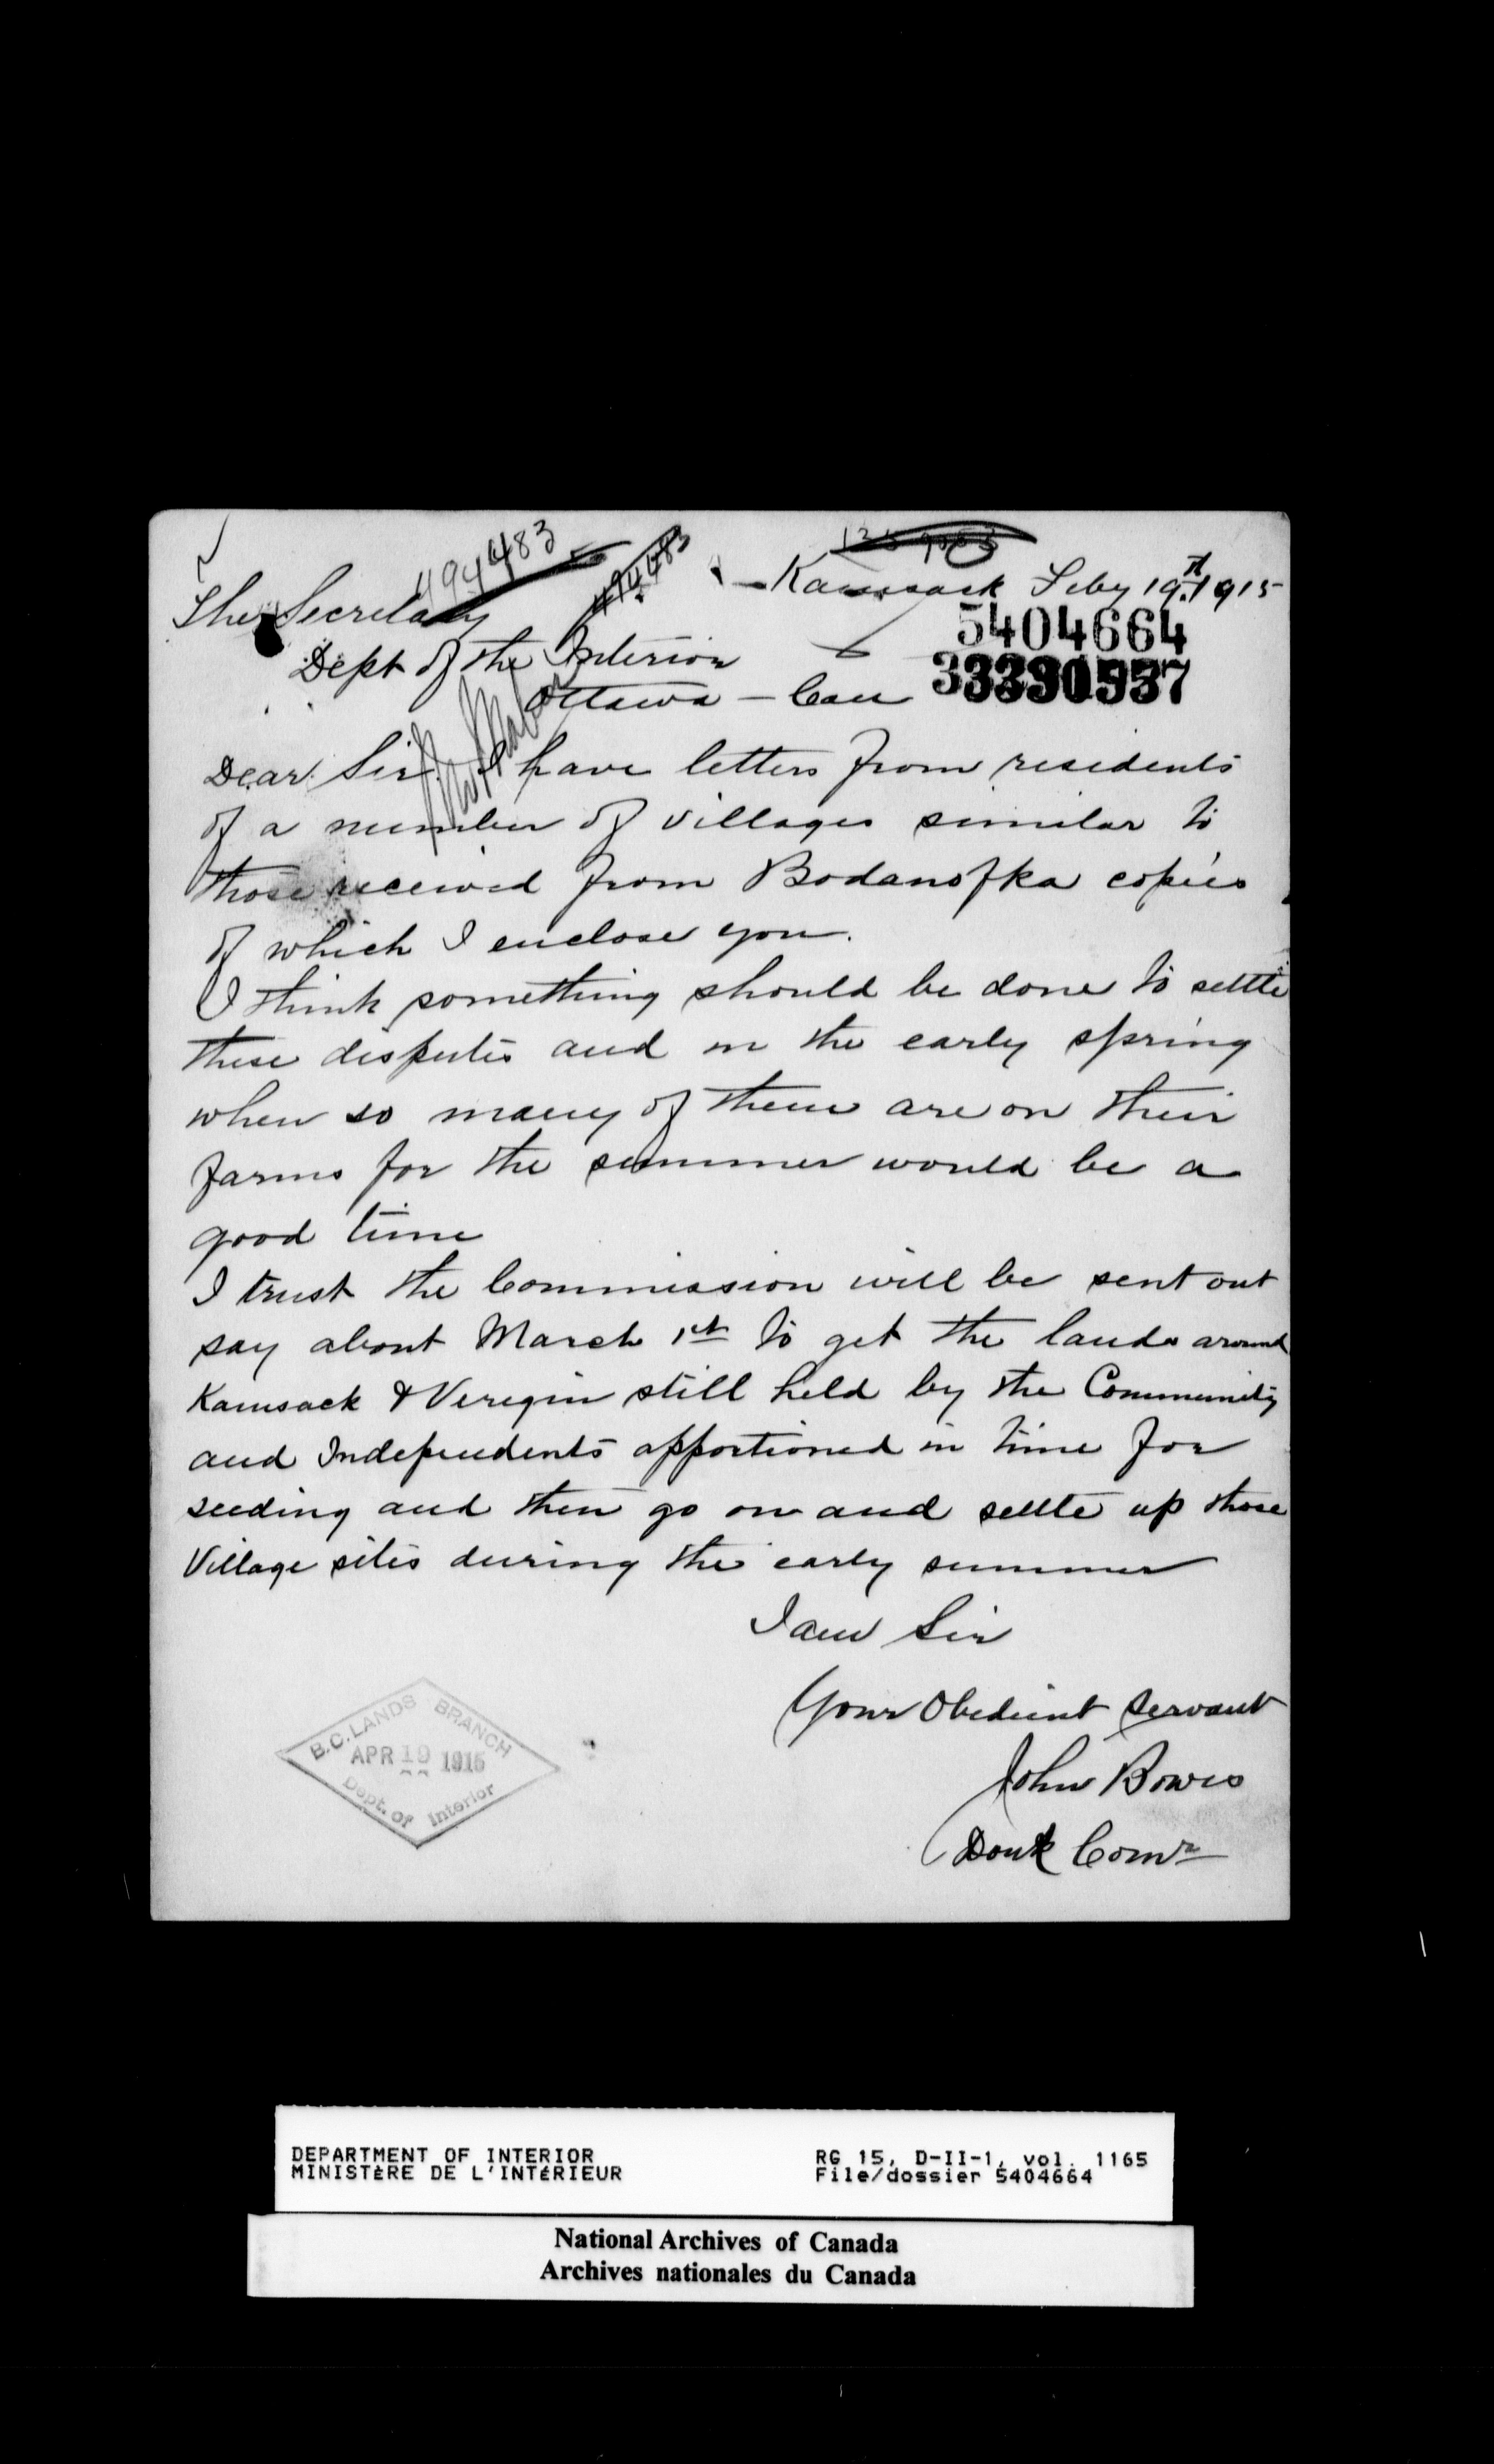 494483
494483
Kamsack Feby 19th 1915
The Secretary
5404664
Dept of the Interior
Ottawa – Can
Dear Sir. I have letters from residents
of a number of villages similar to
those received from Bodanofka copies
of which I enclose you.
I think something should be done to settle
these disputes and in the early spring
when so many of them are on their
farms for the summer would be a
good time
I trust the Commission will be sent out
say about March 1st to get the lands around
Kamsack & Veregin still held by the Community
and Independents apportioned in time for
seeding and then go on and settle up those
Village sites during the early summer
I am Sir
Your Obedient Servant
John Bowes
Douk Comr
B.C. LANDS BRANCH
APR 19 1915
Dept. of Interior
DEPARTMENT OF INTERIOR
MINISTÈRE DE L'INTÉRIEUR
RG 15, D-II-1, vol. 1165
File/dossier 5404664
National Archives of Canada
Archives nationales du Canada